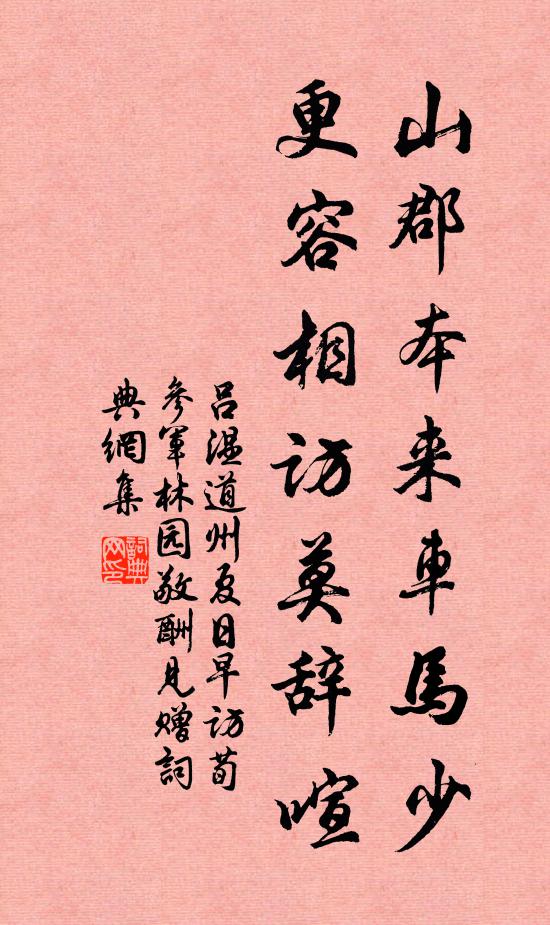 山郡本来車馬少
更容相访莫辞喧
吕温道州夏日早访荀
参军林园敬酬见赠詞
典網集
詞典
网印